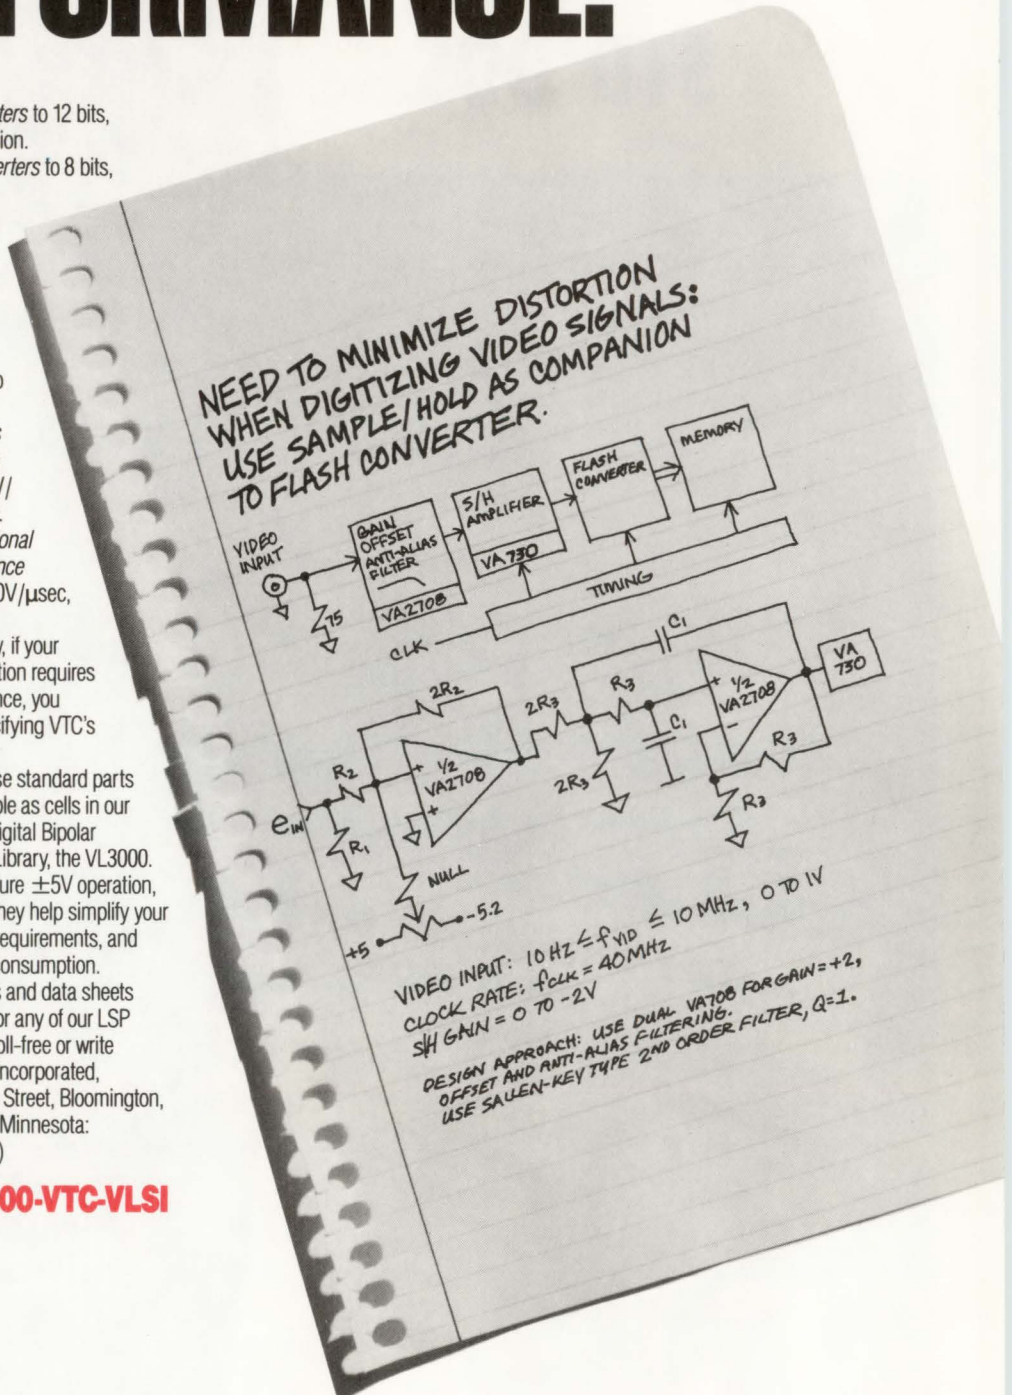 ters to 12 bits,
ion.
erters to 8 bits,
//
onal
nce
0V/µsec,
, if your
tion requires
nce, you
cifying VTC's
se standard parts
ble as cells in our
igital Bipolar
Library, the VL3000.
ure ±5V operation,
hey help simplify your
equirements, and
onsumption.
s and data sheets
or any of our LSP
oll-free or write
ncorporated,
Street, Bloomington,
Minnesota:
)
00-VTC-VLSI
NEED TO MINIMIZE DISTORTION
WHEN DIGITIZING VIDEO SIGNALS:
USE SAMPLE/HOLD AS COMPANION
TO FLASH CONVERTER.
VIDEO
INPUT
75
GAIN
OFFSET
ANTI-ALIAS
FILTER
VA2708
S/H
AMPLIFIER
VA730
FLASH
CONVERTER
MEMORY
TIMING
CLK
2R2
R2
eIN
R1
+
1/2
VA2708
+
NULL
+5
-5.2
2R3
R3
2R3
C1
C1
+
1/2
VA2708
-
R3
R3
VA
730
VIDEO INPUT: 10 HZ ≤ fVID ≤ 10 MHz, 0 TO 1V
CLOCK RATE: fCLK = 40 MHZ
S/H GAIN = 0 TO -2V
DESIGN APPROACH: USE DUAL VA708 FOR GAIN = +2,
OFFSET AND ANTI-ALIAS FILTERING.
USE SALLEN-KEY TYPE 2ND ORDER FILTER, Q=1.